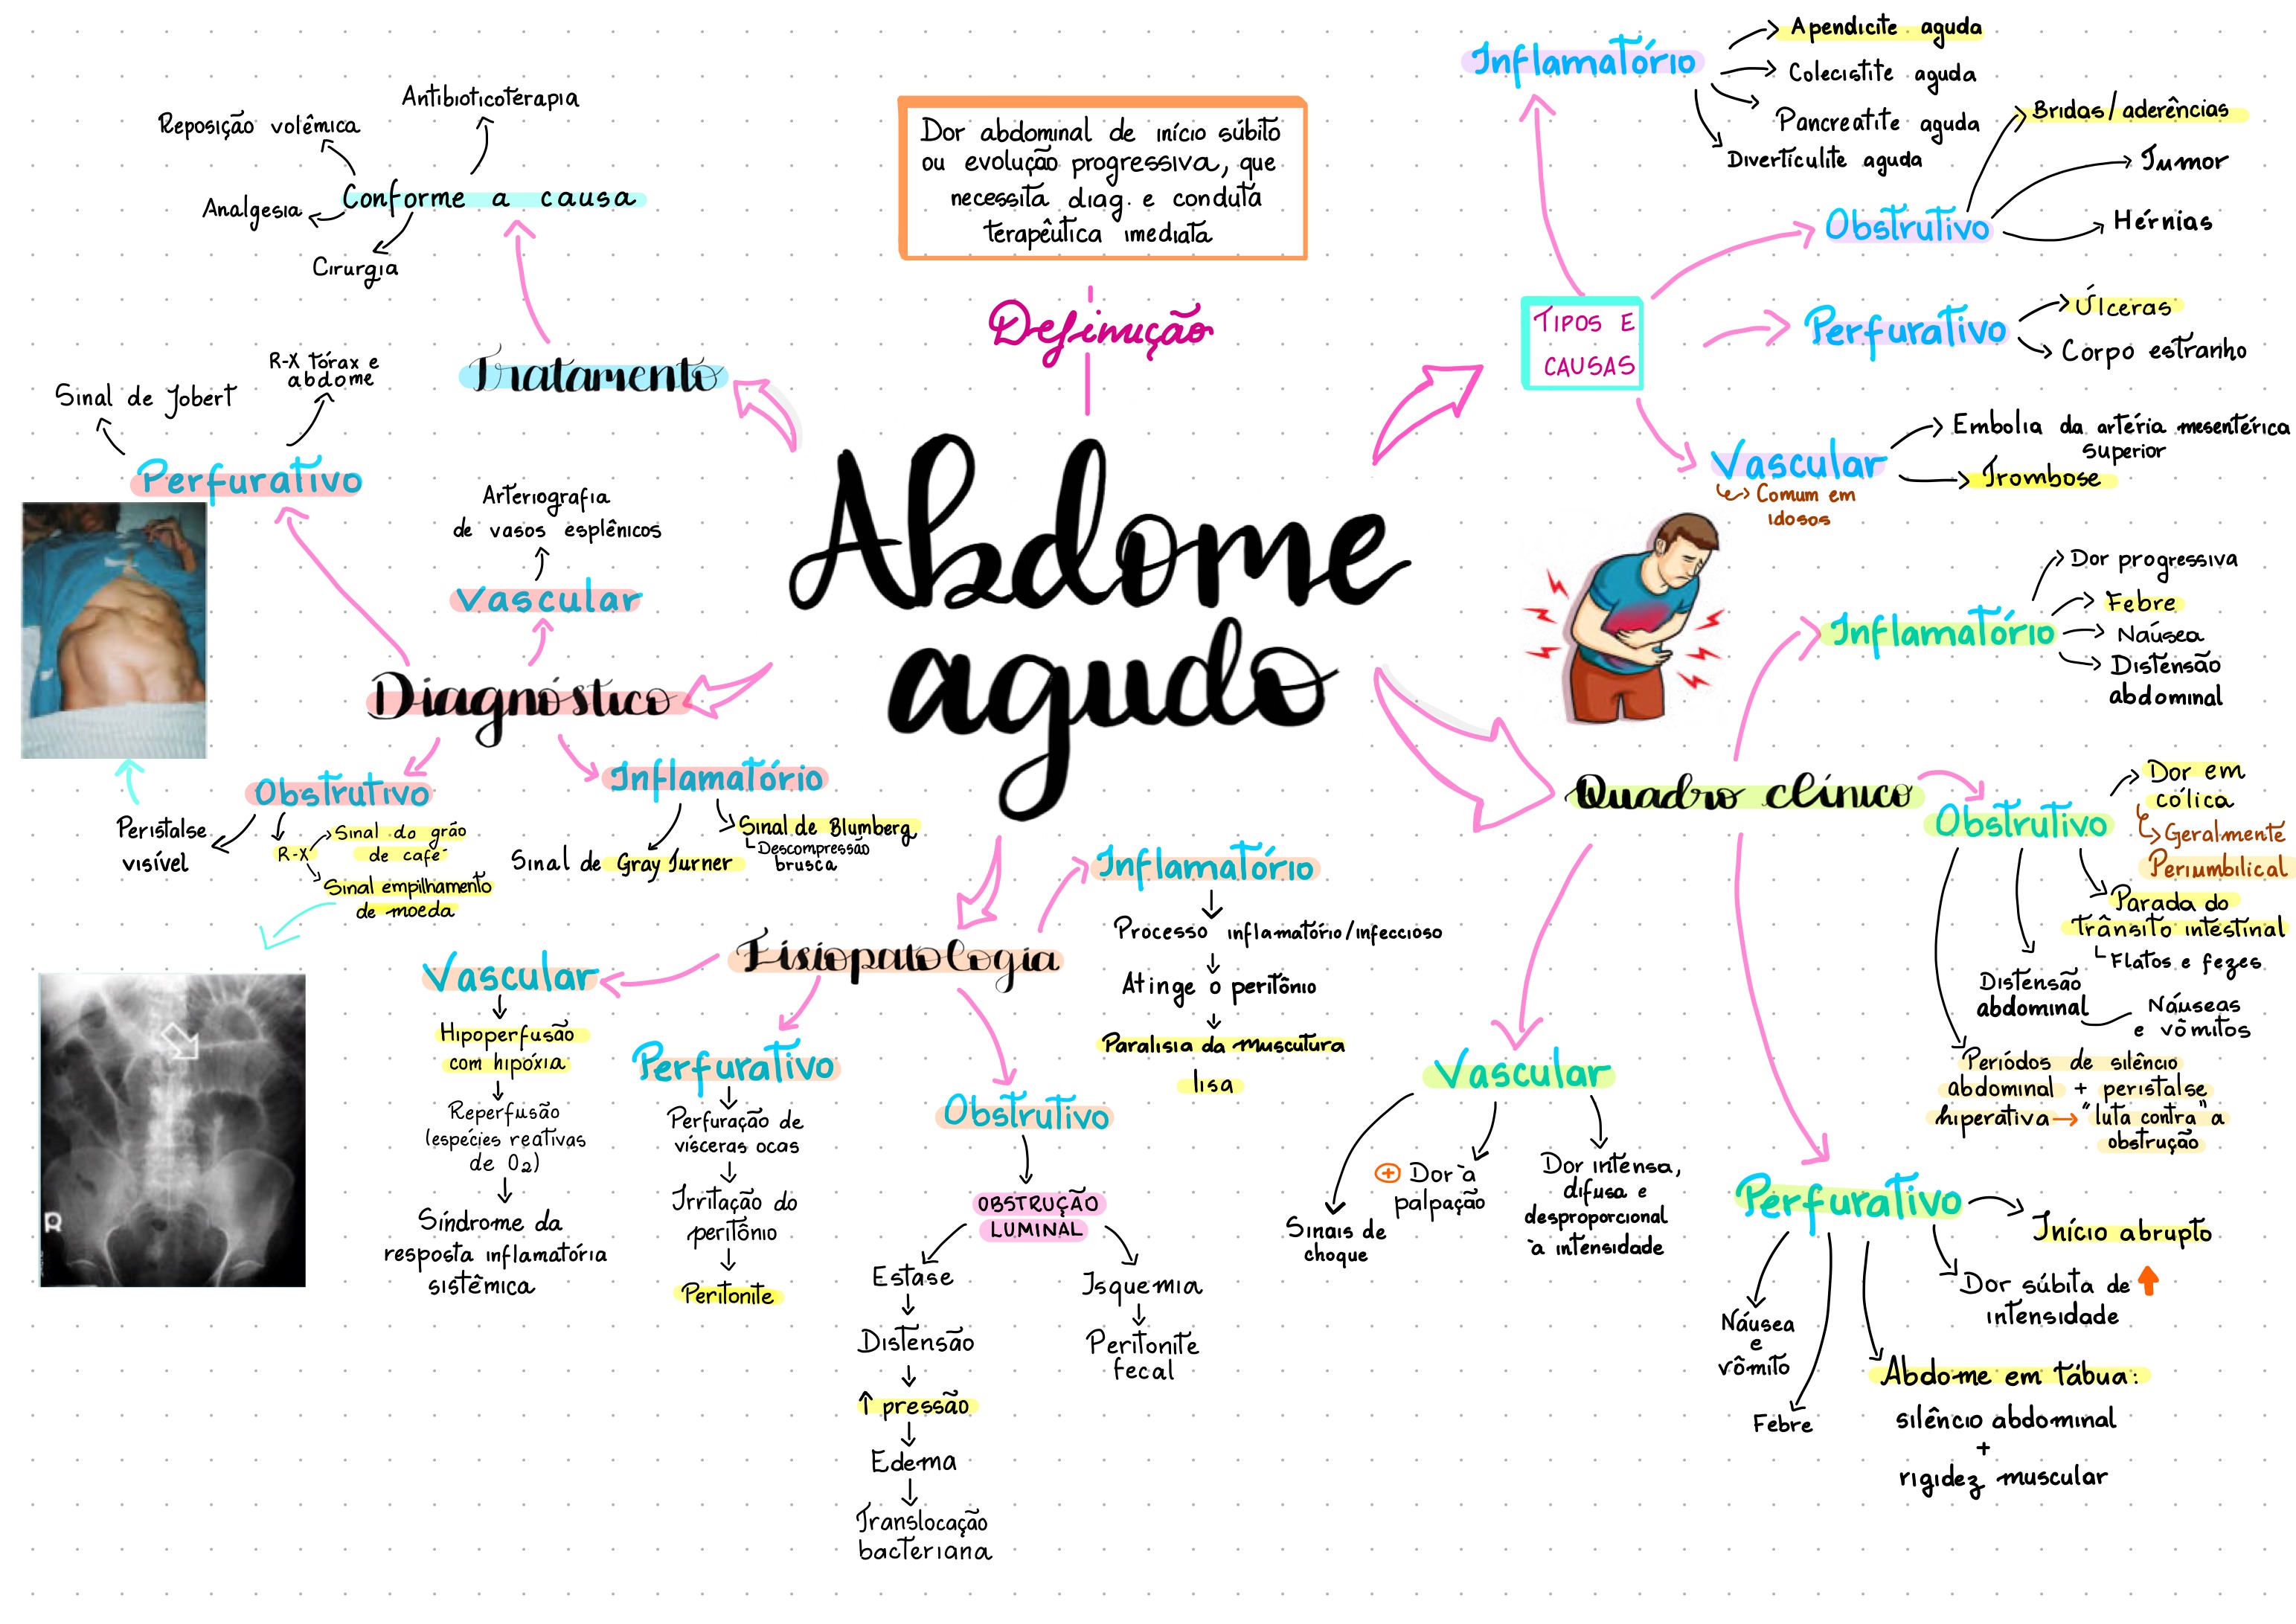 Abdome
agudo
Definição
Dor abdominal de início súbito
ou evolução progressiva, que
necessita diag. e conduta
terapêutica imediata
TIPOS E
CAUSAS
Inflamatório
Apendicite aguda
Colecistite aguda
Pancreatite aguda
Diverticulite aguda
Obstrutivo
Bridas/aderências
Tumor
Hérnias
Perfurativo
Úlceras
Corpo estranho
Vascular
Comum em
idosos
Embolia da artéria mesentérica
superior
Trombose
Quadro clínico
Inflamatório
Dor progressiva
Febre
Naúsea
Distensão
abdominal
Obstrutivo
Dor em
cólica
Geralmente
Periumbilical
Parada do
Trânsito intestinal
Flatos e fezes
Distensão
abdominal
Náuseas
e vômitos
Periódos de silêncio
abdominal + peristalse
hiperativa → "luta contra" a
obstrução
Perfurativo
Início abrupto
Dor súbita de ↑
intensidade
Abdome em tábua:
silêncio abdominal
+
rigidez muscular
Febre
Náusea
e
vômito
Vascular
Sinais de
choque
+ Dor à
palpação
Dor intensa,
difusa e
desproporcional
à intensidade
Fisiopatologia
Inflamatório
Processo inflamatório/infeccioso
Atinge o peritônio
Paralisia da muscutura
lisa
Obstrutivo
OBSTRUÇÃO
LUMINAL
Estase
Distensão
↑ pressão
Edema
Translocação
bacteriana
Isquemia
Peritonite
fecal
Perfurativo
Perfuração de
vísceras ocas
Irritação do
peritônio
Peritonite
Vascular
Hipoperfusão
com hipóxia
Reperfusão
(espécies reativas
de O2)
Síndrome da
resposta inflamatória
sistêmica
Diagnóstico
Inflamatório
Sinal de Gray Turner
Sinal de Blumberg
Descompressão
brusca
Obstrutivo
Peristalse
visível
R-X
Sinal do grão
de café
Sinal empilhamento
de moeda
R
Vascular
Arteriografia
de vasos esplênicos
Perfurativo
Sinal de Jobert
R-X tórax e
abdome
Tratamento
Conforme a causa
Reposição volêmica
Antibioticoterapia
Analgesia
Cirurgia